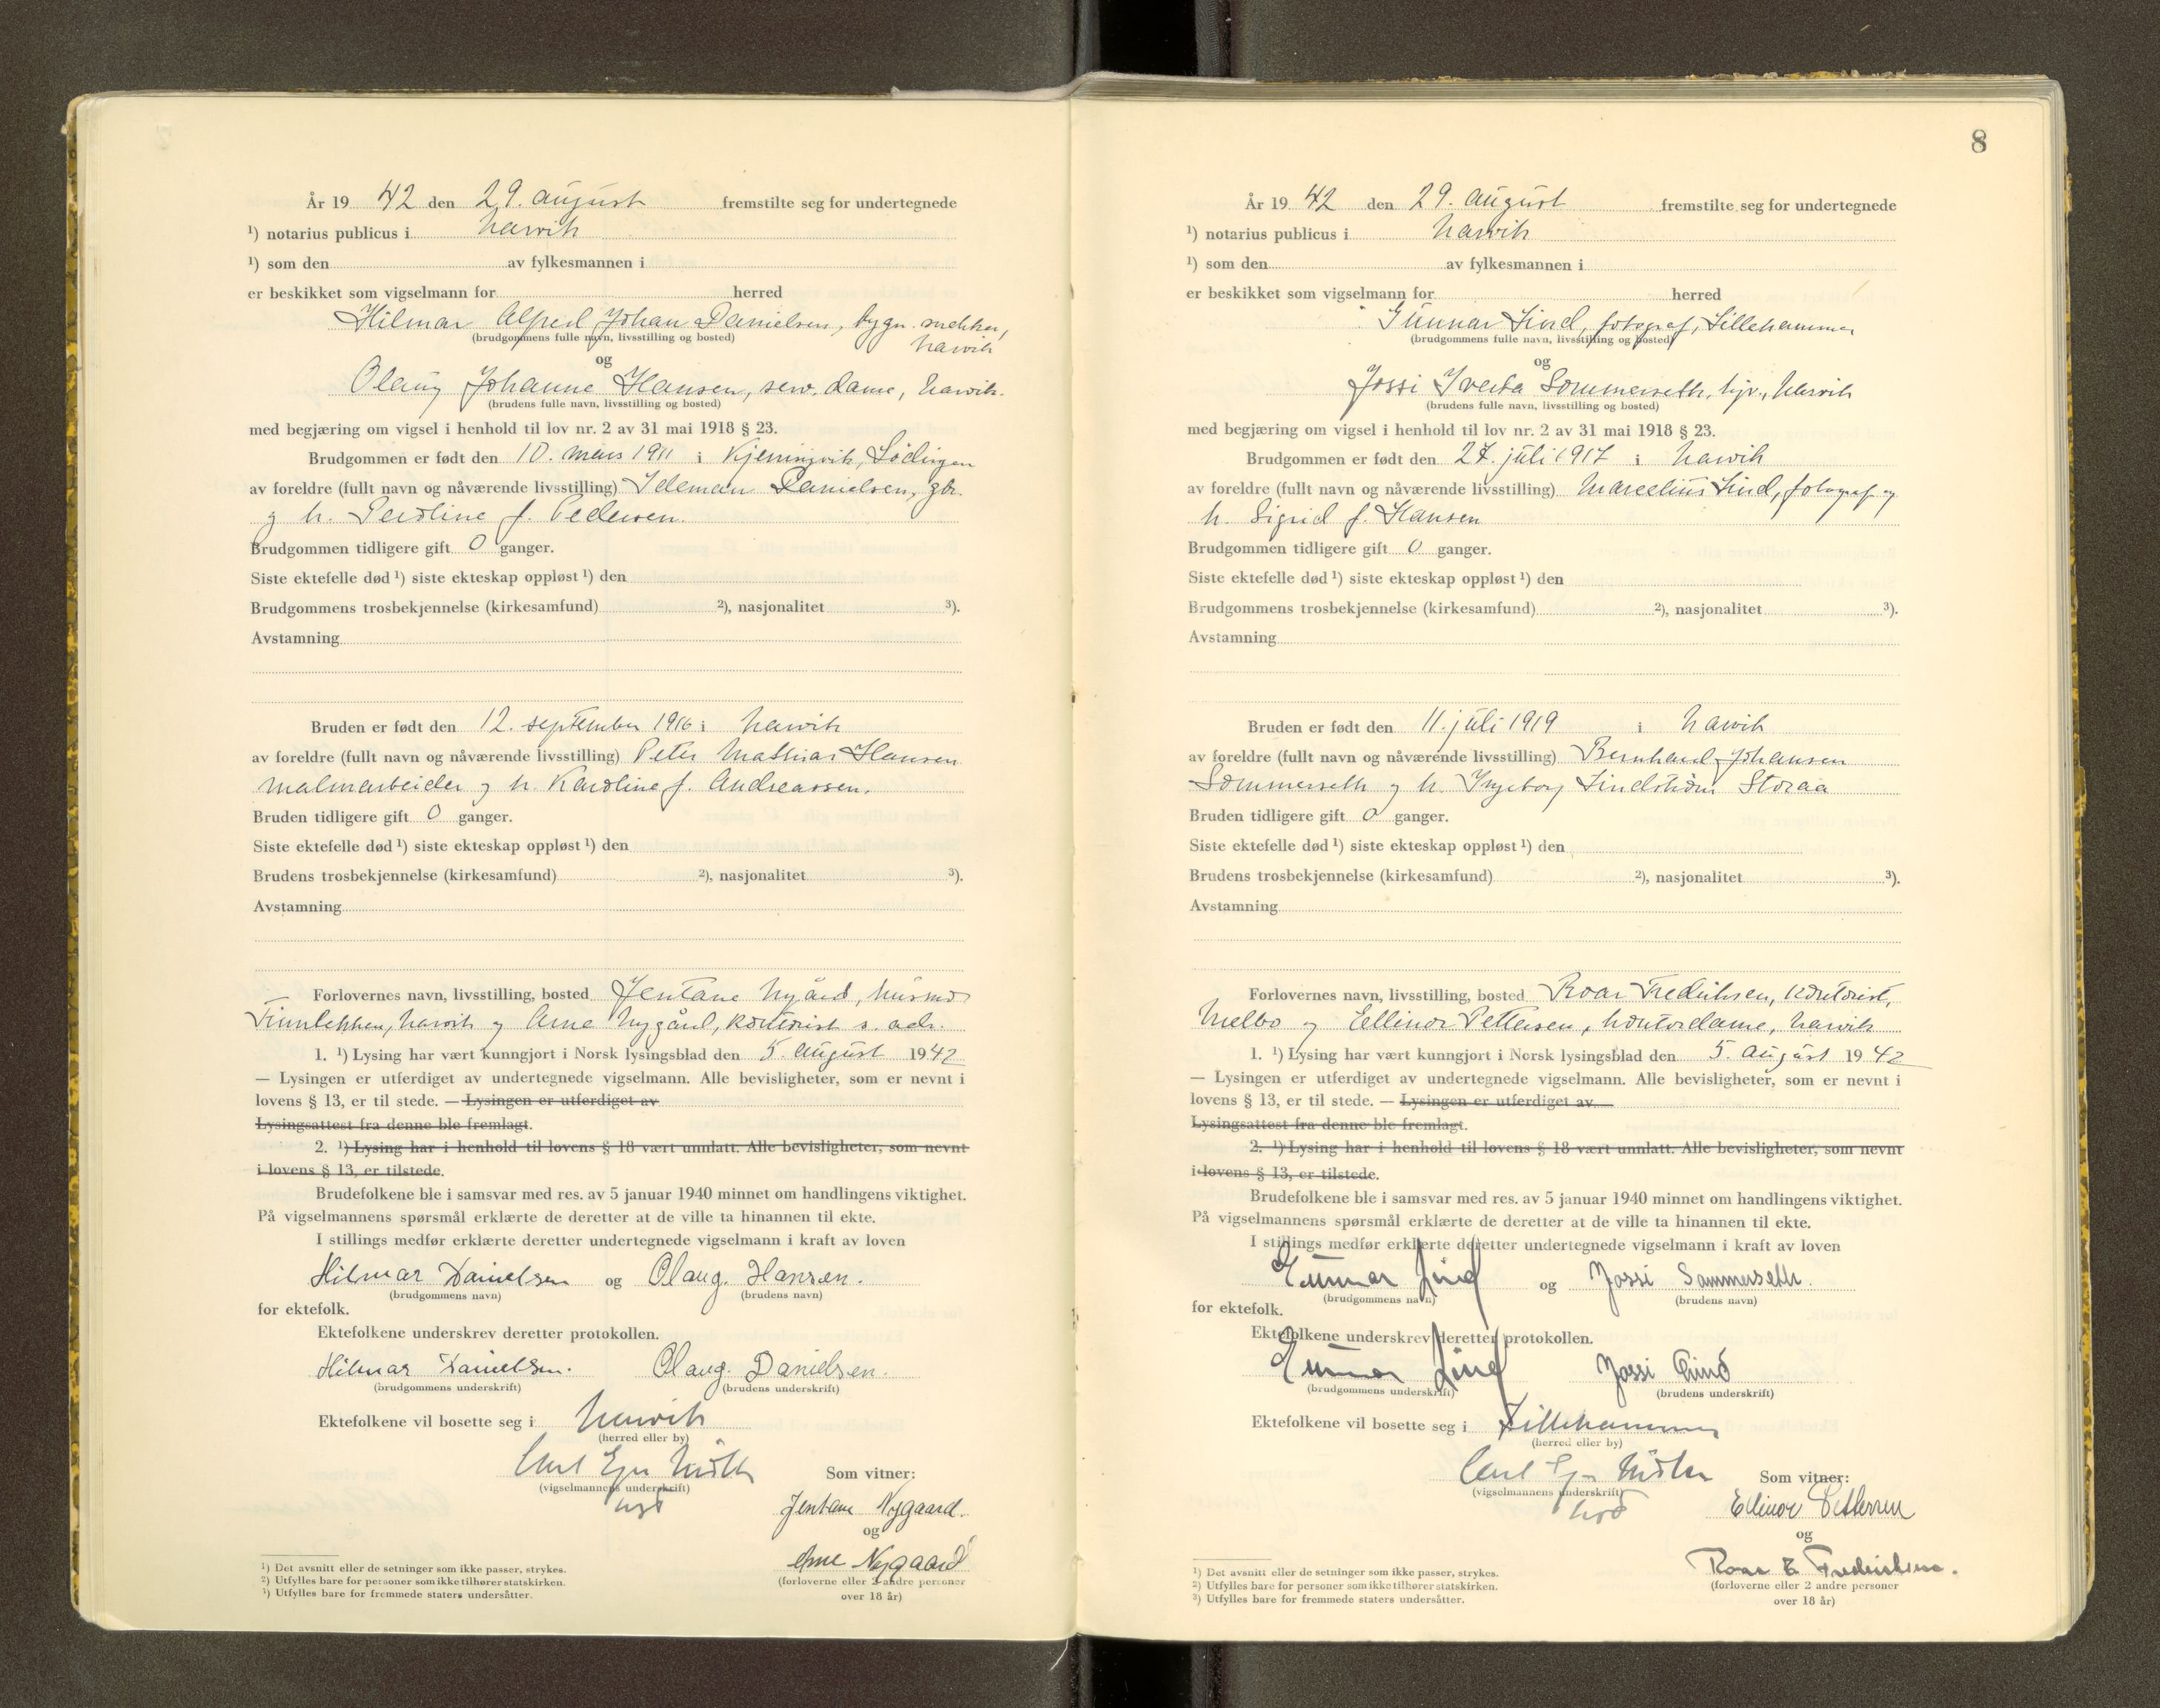 År 19 42 den 29. august fremstilte seg for undertegnede
¹) notarius publicus i Narvik
¹) som den av fylkesmannen i
er beskikket som vigselmann for herred
Hilmar Alfred Johan Danielsen, bygn. snekker,
Narvik
(brudgommens fulle navn, livsstilling og bosted)
og
Olaug Johanne Hansen, serv. dame, Narvik.
(brudens fulle navn, livsstilling og bosted)
med begjæring om vigsel i henhold til lov nr. 2 av 31 mai 1918 § 23.
Brudgommen er født den 10. mars 1911 i Kjeringvik, Lødingen
av foreldre (fullt navn og nåværende livsstilling) Edeman Danielsen, gbr.
og h. Peroline f. Pedersen.
Brudgommen tidligere gift 0 ganger.
Siste ektefelle død ¹) siste ekteskap oppløst ¹) den
Brudgommens trosbekjennelse (kirkesamfund) ²), nasjonalitet ³).
Avstamning
Bruden er født den 12. september 1916 i Narvik
av foreldre (fullt navn og nåværende livsstilling) Peter Mathias Hansen
malmarbeider og h. Karoline f. Andreassen.
Bruden tidligere gift 0 ganger.
Siste ektefelle død ¹) siste ekteskap oppløst ¹) den
Brudens trosbekjennelse (kirkesamfund) ²), nasjonalitet ³).
Avstamning
Forlovernes navn, livsstilling, bosted Jentane Nygård, husmor
Finnbekken, Narvik og Arne Nygård, kontorist s. adr.
1. ¹) Lysing har vært kunngjort i Norsk lysingsblad den 5. august 1942
— Lysingen er utferdiget av undertegnede vigselmann. Alle bevisligheter, som er nevnt i
lovens § 13, er til stede. — Lysingen er utferdiget av
Lysingsattest fra denne ble fremlagt.
2. ¹) Lysing har i henhold til lovens § 18 vært unnlatt. Alle bevisligheter, som nevnt
i lovens § 13, er tilstede.
Brudefolkene ble i samsvar med res. av 5 januar 1940 minnet om handlingens viktighet.
På vigselmannens spørsmål erklærte de deretter at de ville ta hinannen til ekte.
I stillings medfør erklærte deretter undertegnede vigselmann i kraft av loven
Hilmar Danielsen og Olaug. Hansen.
(brudgommens navn) (brudens navn)
for ektefolk.
Ektefolkene underskrev deretter protokollen.
Hilmar Danielsen. Olaug. Danielsen.
(brudgommens underskrift) (brudens underskrift)
Ektefolkene vil bosette seg i Narvik
(herred eller by)
Carl Som vitner:
(vigselmannens underskrift)
Jentane Nygaard.
og
Arne Nygaard
(forloverne eller 2 andre personer
over 18 år)
¹) Det avsnitt eller de setninger som ikke passer, strykes.
²) Utfylles bare for personer som ikke tilhører statskirken.
³) Utfylles bare for fremmede staters undersåtter.
8
År 19 42 den 29. august fremstilte seg for undertegnede
¹) notarius publicus i Narvik
¹) som den av fylkesmannen i
er beskikket som vigselmann for herred
Gunnar Lind, fotograf, Lillehammer
(brudgommens fulle navn, livsstilling og bosted)
og
Jossi Sommerseth, Narvik
(brudens fulle navn, livsstilling og bosted)
med begjæring om vigsel i henhold til lov nr. 2 av 31 mai 1918 § 23.
Brudgommen er født den 27. juli 1917 i Narvik
av foreldre (fullt navn og nåværende livsstilling) Marcelius Lind, fotograf og
h. Sigrid f. Hansen
Brudgommen tidligere gift 0 ganger.
Siste ektefelle død ¹) siste ekteskap oppløst ¹) den
Brudgommens trosbekjennelse (kirkesamfund) ²), nasjonalitet ³).
Avstamning
Bruden er født den 11. juli 1919 i Narvik
av foreldre (fullt navn og nåværende livsstilling) Bernhard Johansen
Sommerseth og h. Ingeborg Lindstrøm Storaa
Bruden tidligere gift 0 ganger.
Siste ektefelle død ¹) siste ekteskap oppløst ¹) den
Brudens trosbekjennelse (kirkesamfund) ²), nasjonalitet ³).
Avstamning
Forlovernes navn, livsstilling, bosted Roar Fredriksen, kontorist,
Melbo og Ellinor Pettersen, kontordame, Narvik
1. ¹) Lysing har vært kunngjort i Norsk lysingsblad den 5. august 1942
— Lysingen er utferdiget av undertegnede vigselmann. Alle bevisligheter, som er nevnt i
lovens § 13, er til stede. — Lysingen er utferdiget av
Lysingsattest fra denne ble fremlagt.
2. ¹) Lysing har i henhold til lovens § 18 vært unnlatt. Alle bevisligheter, som nevnt
i lovens § 13, er tilstede.
Brudefolkene ble i samsvar med res. av 5 januar 1940 minnet om handlingens viktighet.
På vigselmannens spørsmål erklærte de deretter at de ville ta hinannen til ekte.
I stillings medfør erklærte deretter undertegnede vigselmann i kraft av loven
Gunnar Lind og Jossi Sommerseth.
(brudgommens navn) (brudens navn)
for ektefolk.
Ektefolkene underskrev deretter protokollen.
Gunnar Lind Jossi Lind
(brudgommens underskrift) (brudens underskrift)
Ektefolkene vil bosette seg i Lillehammer
(herred eller by)
Carl Som vitner:
(vigselmannens underskrift)
Ellinor Pettersen
og
Roar E Fredriksen.
(forloverne eller 2 andre personer
over 18 år)
¹) Det avsnitt eller de setninger som ikke passer, strykes.
²) Utfylles bare for personer som ikke tilhører statskirken.
³) Utfylles bare for fremmede staters undersåtter.